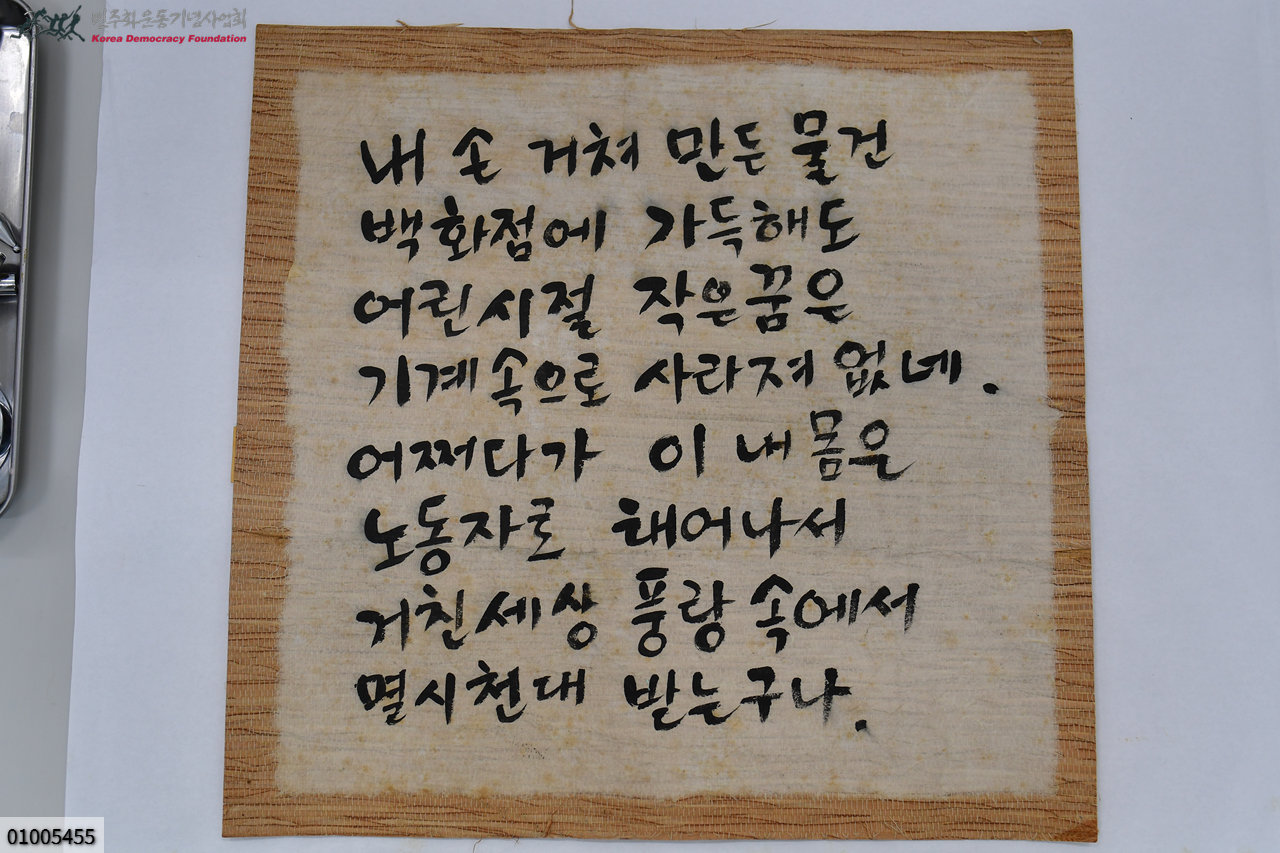 민주화운동기념사업회
Korea Democracy Foundation
내 손 거쳐 만든 물건
백화점에 가득해도
어린시절 작은꿈은
기계속으로 사라져 없네.
어쩌다가 이 내 몸은
노동자로 태어나서
거친세상 풍랑 속에서
멸시천대 받는구나.
01005455